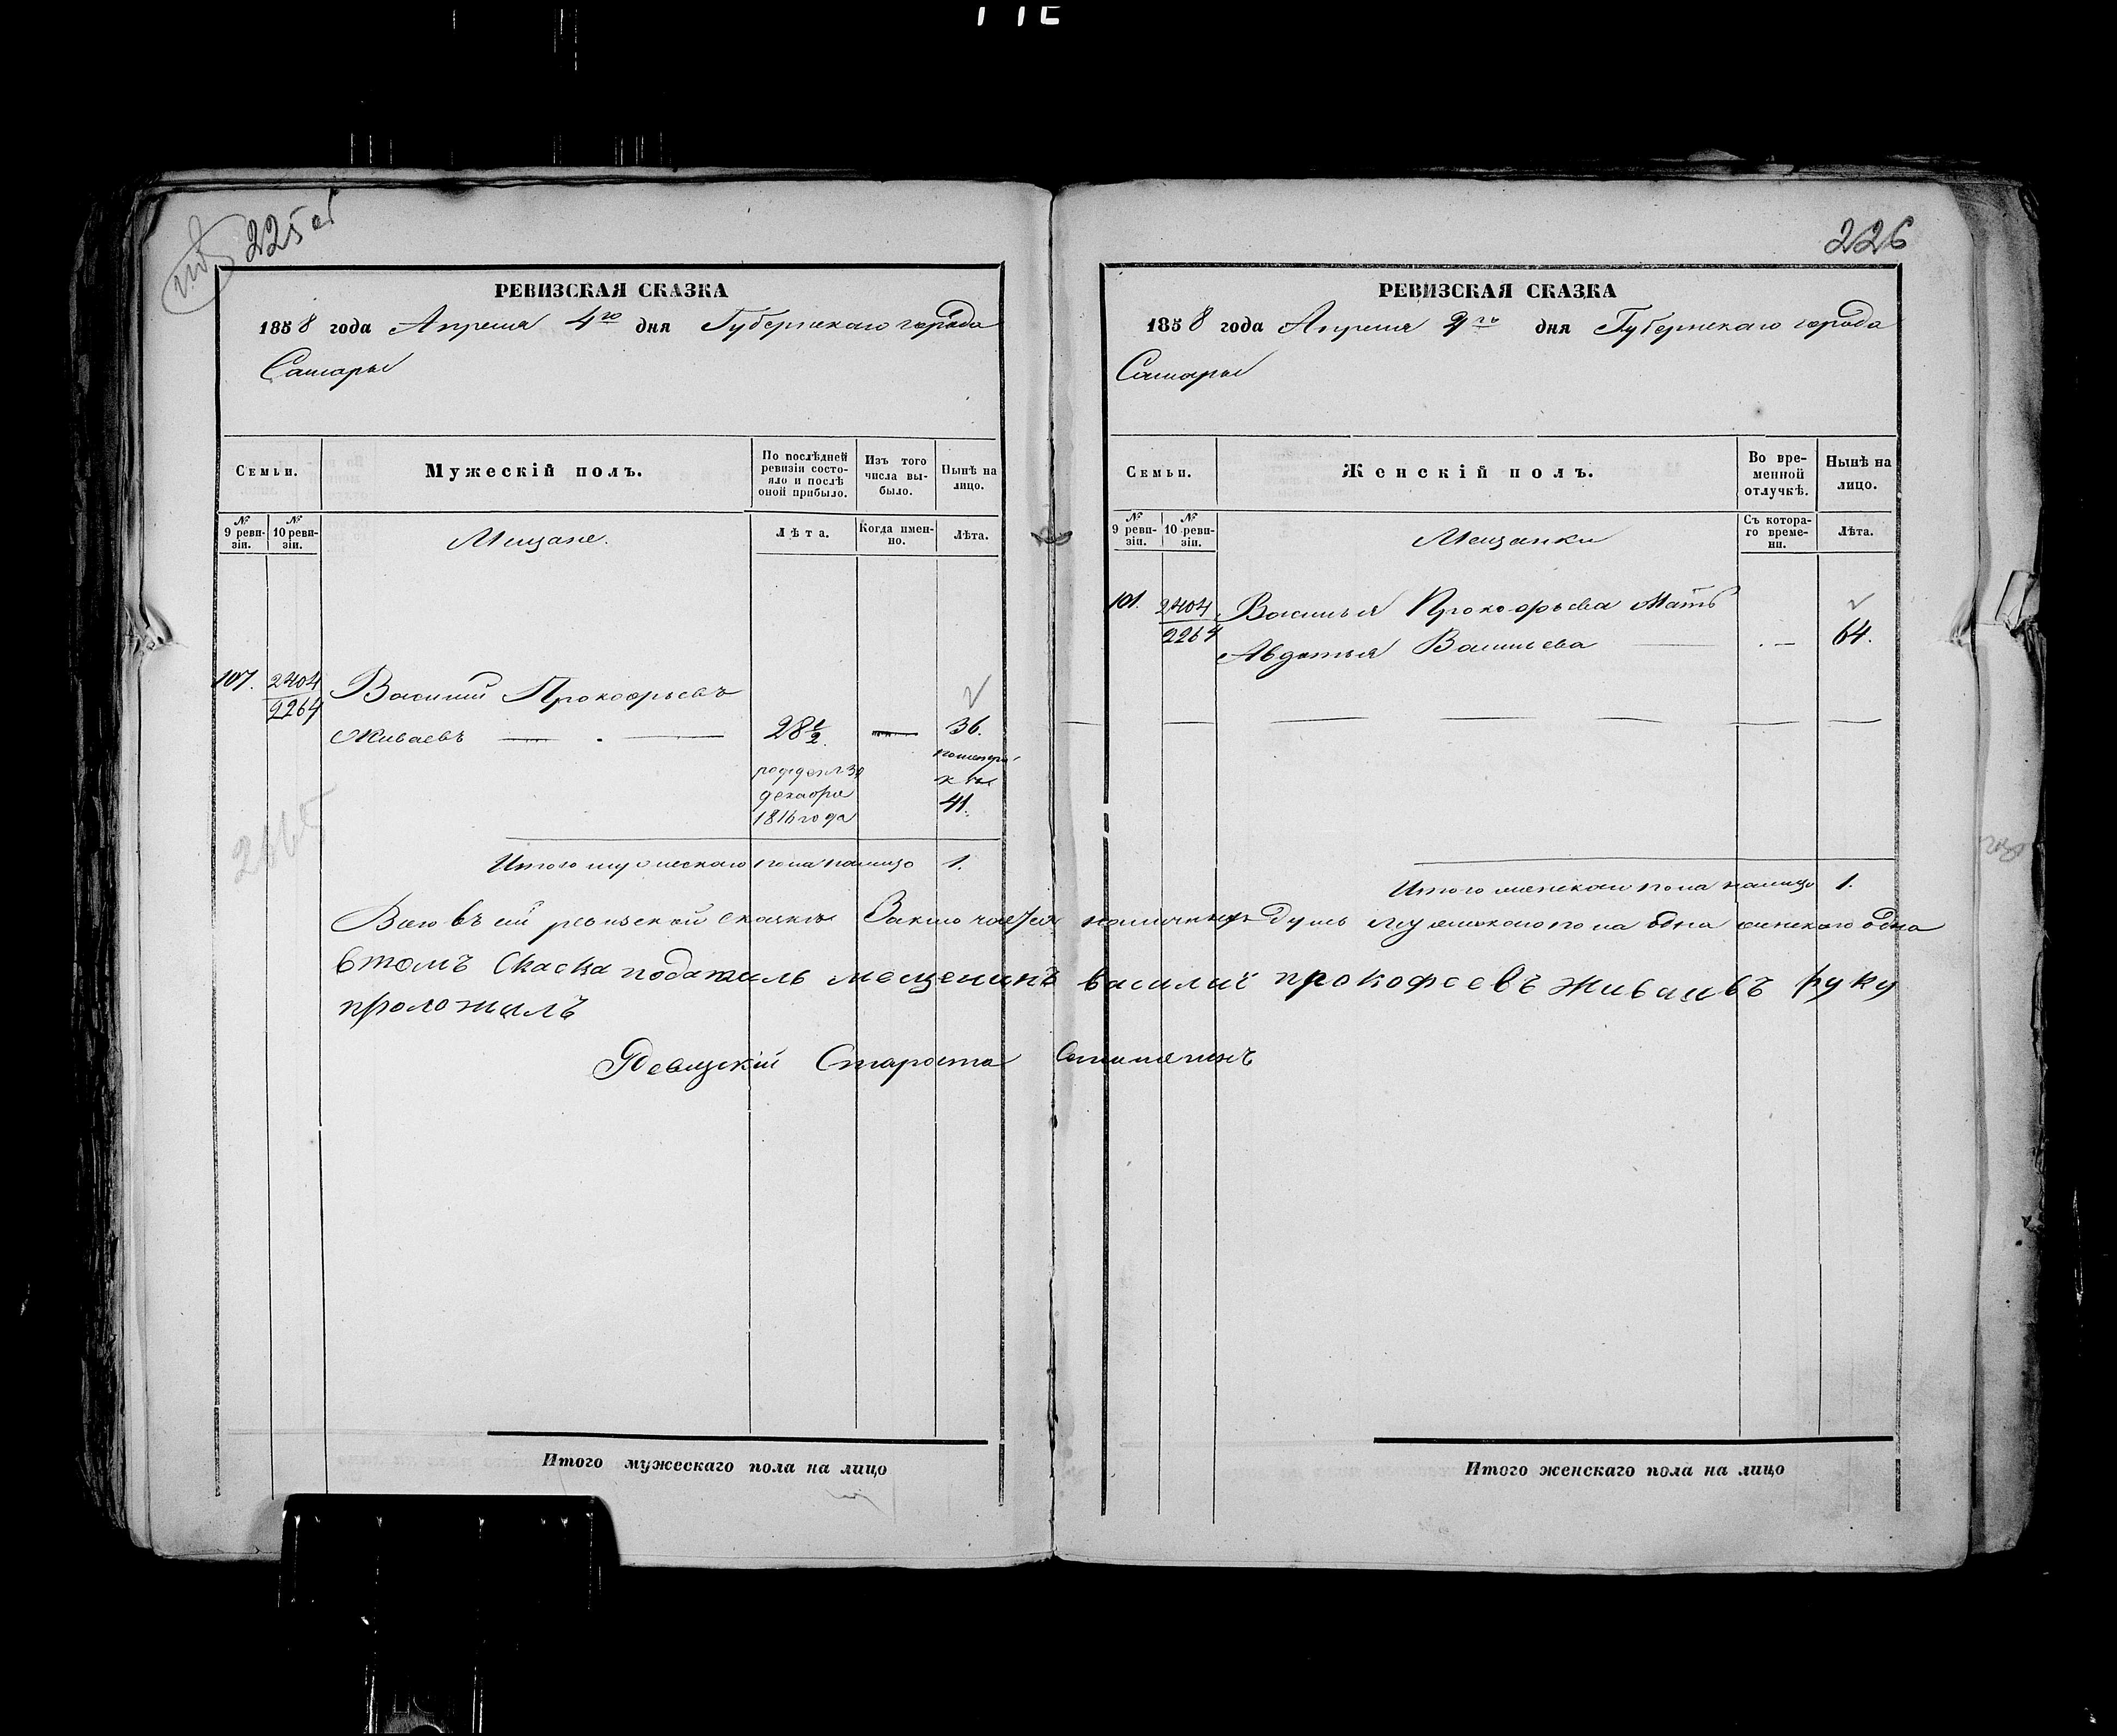 225 об
РЕВИЗСКАЯ СКАЗКА
1858 года Апреля 4го дня Губернскаго города
Самары
Семьи.
Мужескій полъ.
По послѣдней ревизіи состояло и послѣ оной прибыло.
Изъ того числа выбыло.
Нынѣ на лицо.
№ 9 ревизіи.
№ 10 ревизіи.
Мещане.
Лѣта.
Когда именно.
Лѣта.
107. 2404 Василий Прокофьевъ
2264
Живаевъ — . — 28 1/2. — 36.
декабря
1816 года 41.
Итого мужескаго пола налицо 1.
226
РЕВИЗСКАЯ СКАЗКА
1858 года Апреля го дня Губернскаго города
Самары
Семьи.
Женскій полъ.
Во временной отлучкѣ.
Нынѣ на лицо.
№ 9 ревизіи.
№ 10 ревизіи.
Мещанки
Съ котораго времени.
Лѣта.
2404 Василья Прокофьева Мать
2264 Авдотья Васильева — . — 64.
Итого женскаго пола налицо 1.
Всего въ сей ревизской сказке Заключается наличныхъ душъ мужескаго пола одна женскаго одна
втомъ Скаска податель мещенинъ василий прокофеевъ живаивъ руку
проложилъ
Ревизскій Староста
Итого мужескаго пола на лицо
Итого женскаго пола на лицо